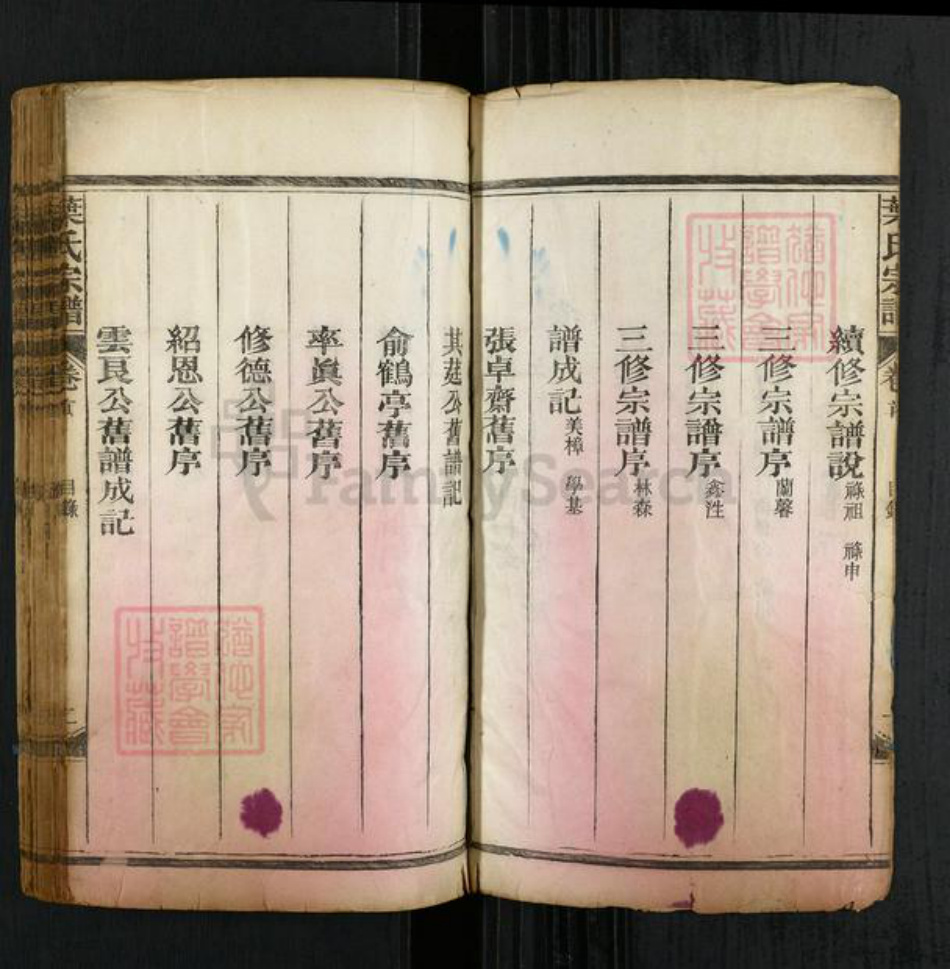 葉氏宗譜 卷首 目錄 一
續修宗譜說 祿祖 祿申
三修宗譜序 蘭馨
三修宗譜序 鑫泩
三修宗譜序 林森
譜成記 美樟 學基
張卓齋舊序
其莛公舊譜記
俞鶴亭舊序
率眞公舊序
修德公舊序
紹恩公舊序
雲良公舊譜成記
葉氏宗譜 卷首 目錄 二
FamilySearch